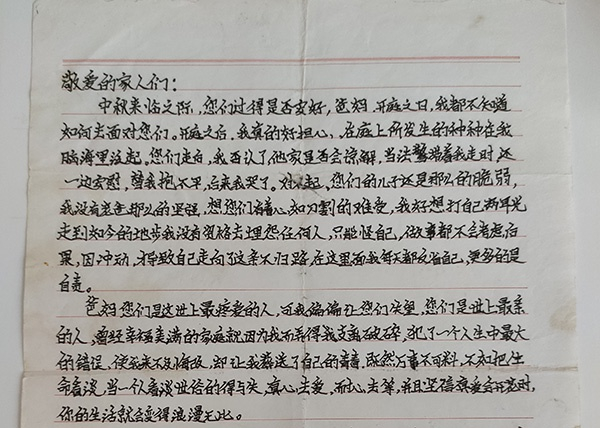 敬爱的家人们：
中秋来临之际，您们过得是否安好，爸妈，开庭之日，我都不知道
如何去面对您们。开庭之后，我真的好担心，在庭上所发生的种种在我
脑海里泛起。您们走后，我否认了他家是否会谅解，当法警带着我走时，还
一边安慰，替我抱不平，后来我哭了。对不起，您们的儿子还是那么的脆弱，
我没有爸爸那么的坚强，想您们有着心如刀割的难受，我好想打自己两耳光
走到如今的地步我没有资格去埋怨任何人，只能怪自己，做事都不会考虑后
果，因冲动，才导致自己走向了这条不归路，在这里面我每天都反省自己，更多的是
自责。
爸妈您们是这世上最疼爱的人，可我偏偏让您们失望，您们是世上最亲
的人，曾经幸福美满的家庭就因为我而弄得我支离破碎，犯了一个人生中最大
的错误，使我来不及悔改，却让我葬送了自己的青春，既然万事不可料，不如把生
命看淡，当一个人看淡世俗的得与失，真心去爱，而心去等，并且坚信
你的生活就会变得浪漫无比。